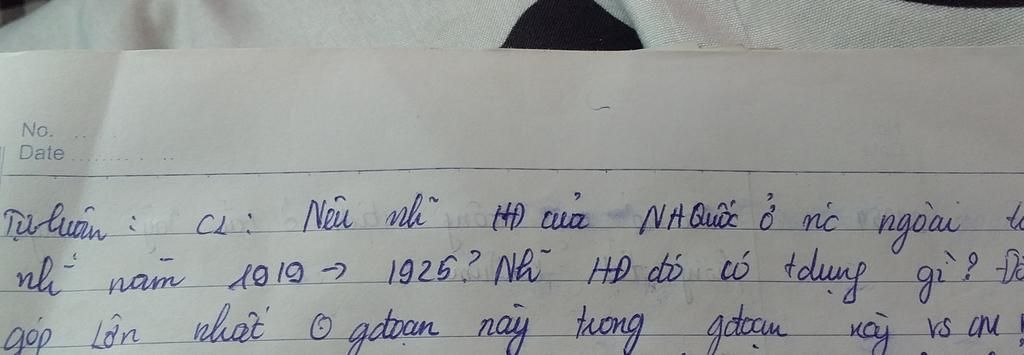 No. ..
Date ............
Tự luận : C1 : Nêu nh~ HĐ của NAQuốc ở nc ngoài
nh~ năm 1919 → 1925? Nh~ HĐ đó có tdụng gì?
góp lớn nhất gđoạn này trong gđoạn này vs CM